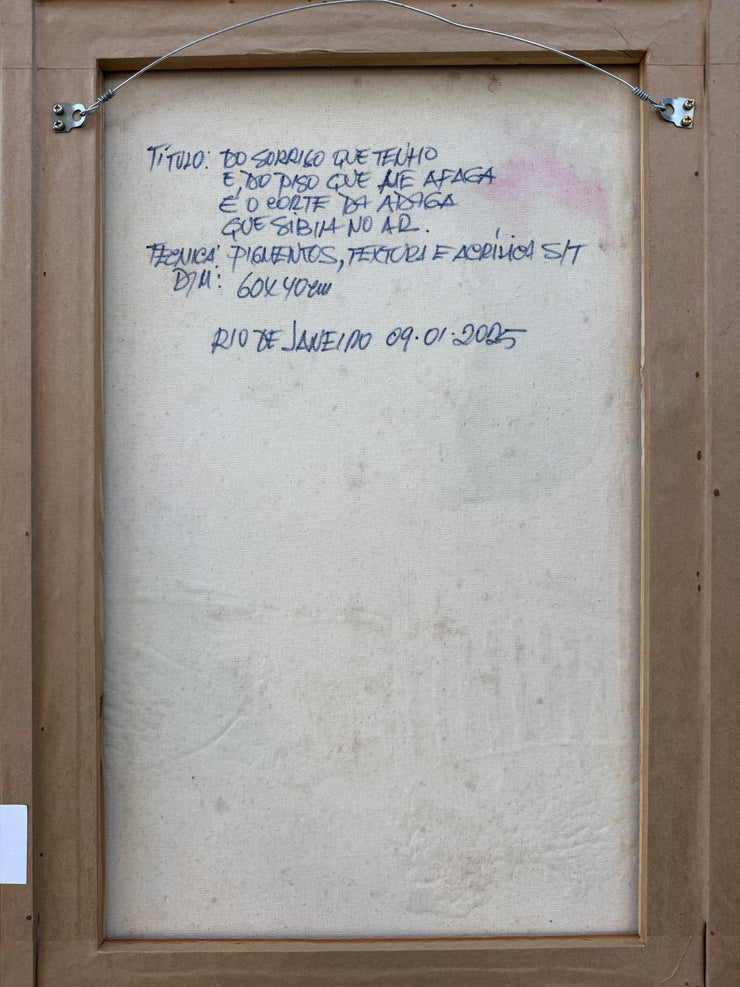 TÍTULO: DO SORRISO QUE TENHO
E, DO PISO QUE ME AFAGA
É O CORTE DA ADAGA
QUE SIBILA NO AR.
TÉCNICA: PIGMENTOS, TEXTURA E ACRÍLICA S/T
DIM: 60X40cm
RIO DE JANEIRO 09.01.2025